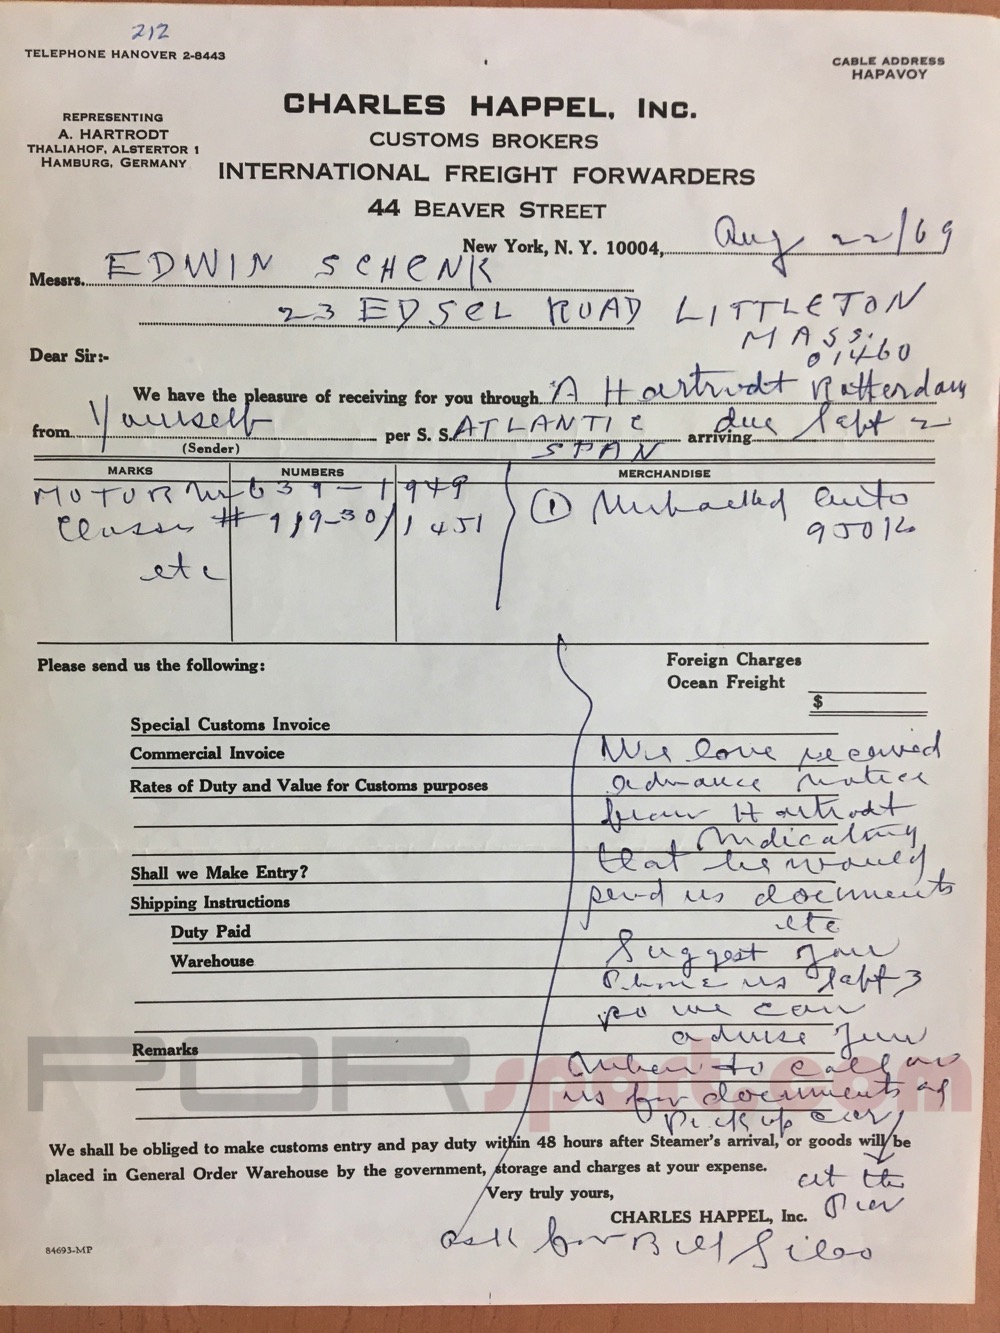 212
TELEPHONE HANOVER 2-8443
CABLE ADDRESS
HAPAVOY
CHARLES HAPPEL, INC.
REPRESENTING
A. HARTRODT
THALIAHOF, ALSTERTOR 1
HAMBURG, GERMANY
CUSTOMS BROKERS
INTERNATIONAL FREIGHT FORWARDERS
44 BEAVER STREET
New York, N. Y. 10004, Aug 22/69
Messrs. EDWIN SCHENK
23 EDSEL ROAD LITTLETON
MASS.
01460
Dear Sir:-
We have the pleasure of receiving for you through A Hartrodt Rotterdam
from yourself per S. S. ATLANTIC arriving due Sept 2
(Sender) SPAN
MARKS NUMBERS MERCHANDISE
MOTOR 639-1949 (1) auto
# 719-30/1451 950 k
etc
Please send us the following:
Foreign Charges
Ocean Freight
$
Special Customs Invoice
Commercial Invoice
Rates of Duty and Value for Customs purposes
Shall we Make Entry?
Shipping Instructions
Duty Paid
Warehouse
Remarks
We have received
advance notice
from Hartrodt
indicating
that he would
send us documents
etc
Suggest you
Phone us Sept 3
so we can
advise you
when to call on
us for documents
Pick up car
at the
Pier
PORsport.com
We shall be obliged to make customs entry and pay duty within 48 hours after Steamer's arrival, or goods will be
placed in General Order Warehouse by the government, storage and charges at your expense.
Very truly yours,
CHARLES HAPPEL, Inc.
ask for Bill
84693-MP